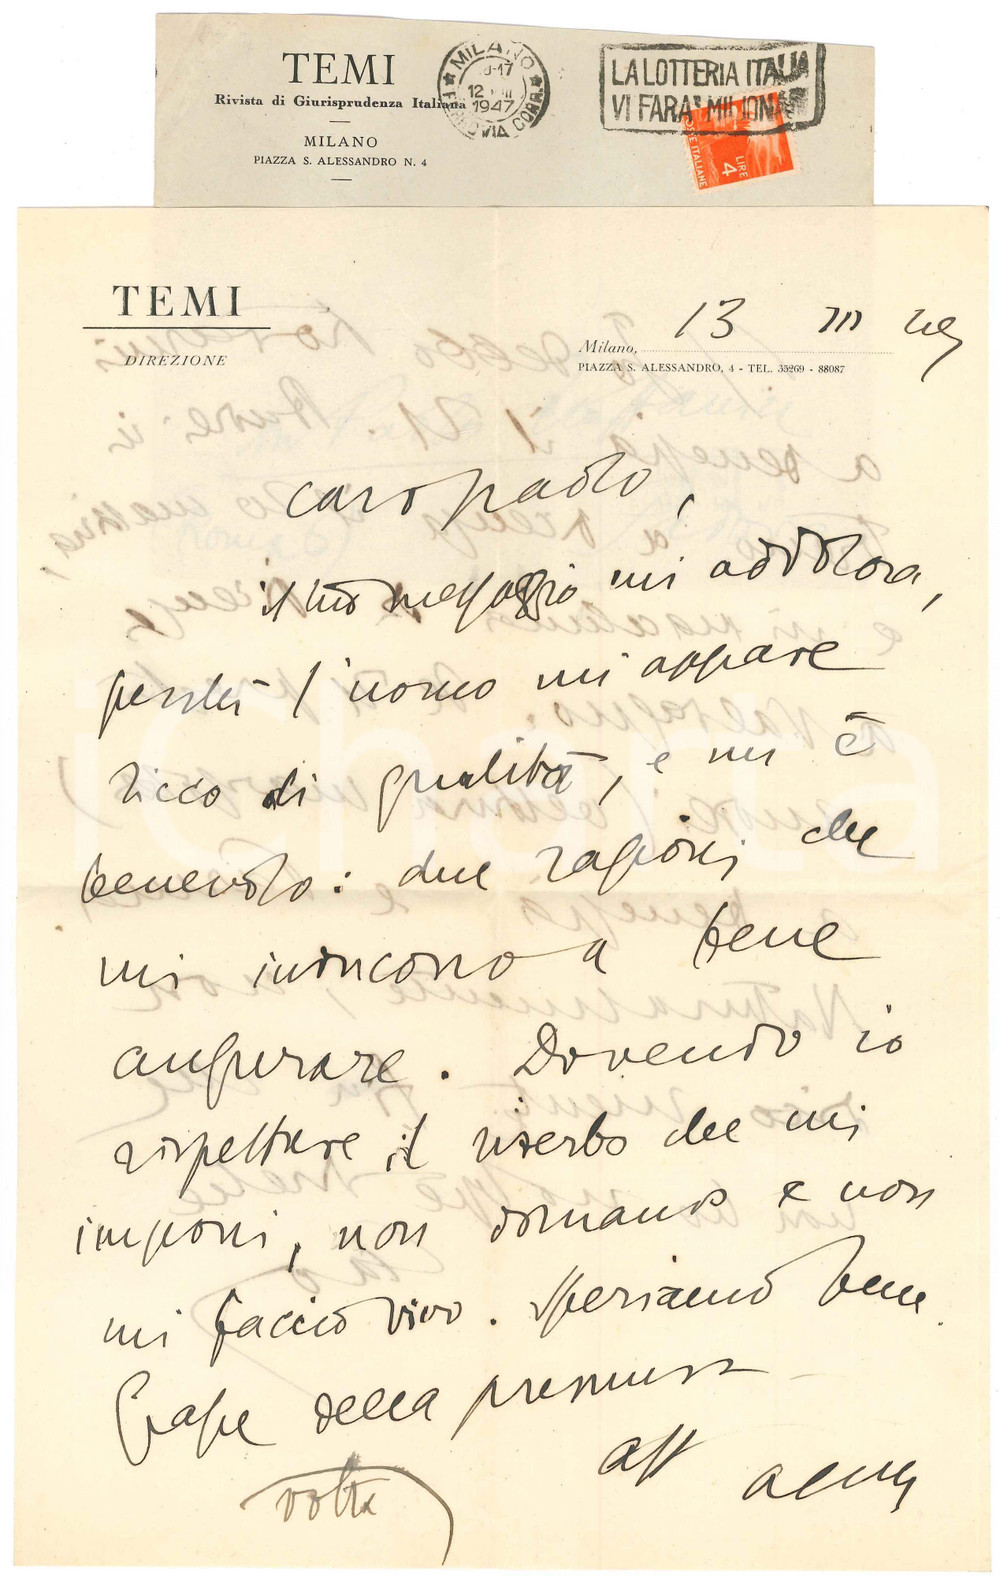 TEMI
Rivista di Giurisprudenza Italiana
MILANO
PIAZZA S. ALESSANDRO N. 4
MILANO
12 1947
FERROVIA CORR.
LA LOTTERIA ITALIA
VI FARA' MILIONA
POSTE ITALIANE
LIRE
4
TEMI
DIREZIONE
13 III
Milano,
PIAZZA S. ALESSANDRO, 4 - TEL. 35269 - 88087
caro paolo,
il tuo messaggio mi addolora,
perché l'uomo mi appare
ricco di qualità, e mi è
benevolo: due ragioni che
mi inducono a bene
augurare. Dovendo io
rispettare il riserbo che mi
imponi, non domando e non
mi faccio vivo. Speriamo bene.
Grazie della premura
aff
volta
iCharta